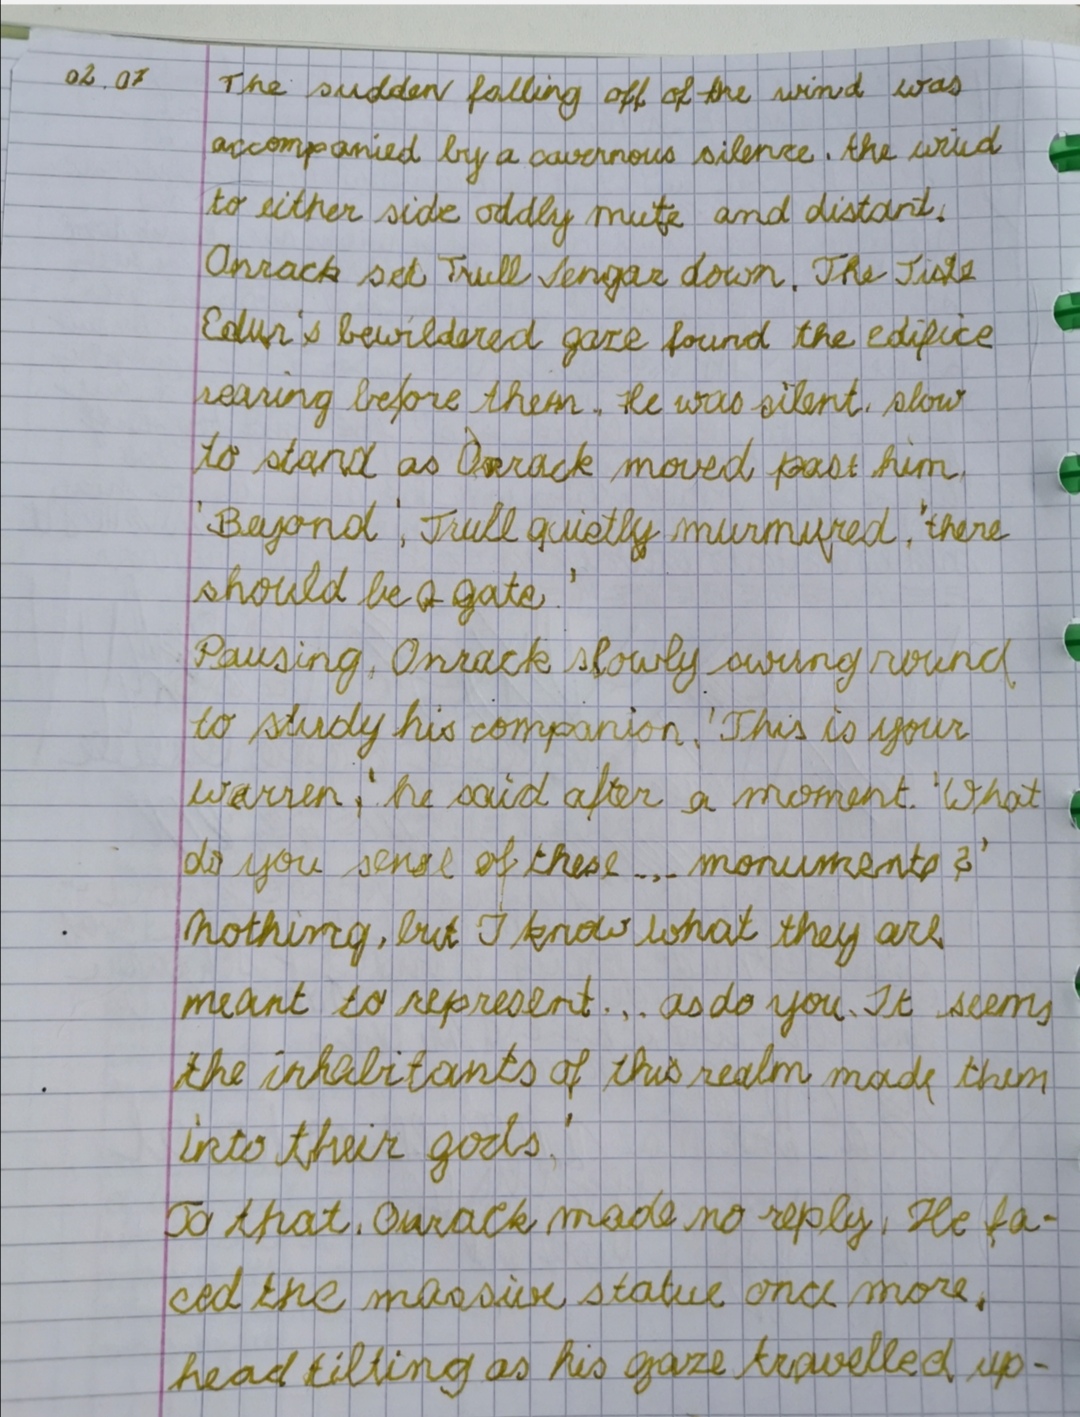 02.07
The sudden falling off of the wind was
accompanied by a cavernous silence. the wind
to either side oddly mute and distant.
Onrack set Trull Sengar down. The Tiste
Edur's bewildered gaze found the edifice
rearing before them. He was silent, slow
to stand as Onrack moved past him.
'Beyond', Trull quietly murmured, 'there
should be a gate.'
Pausing, Onrack slowly swung round
to study his companion. 'This is your
warren,' he said after a moment. 'What
do you sense of these ... monuments?'
Nothing, but I know what they are
meant to represent... as do you. It seems
the inhabitants of this realm made them
into their gods.'
To that, Onrack made no reply. He fa-
ced the massive statue once more,
head tilting as his gaze travelled up-